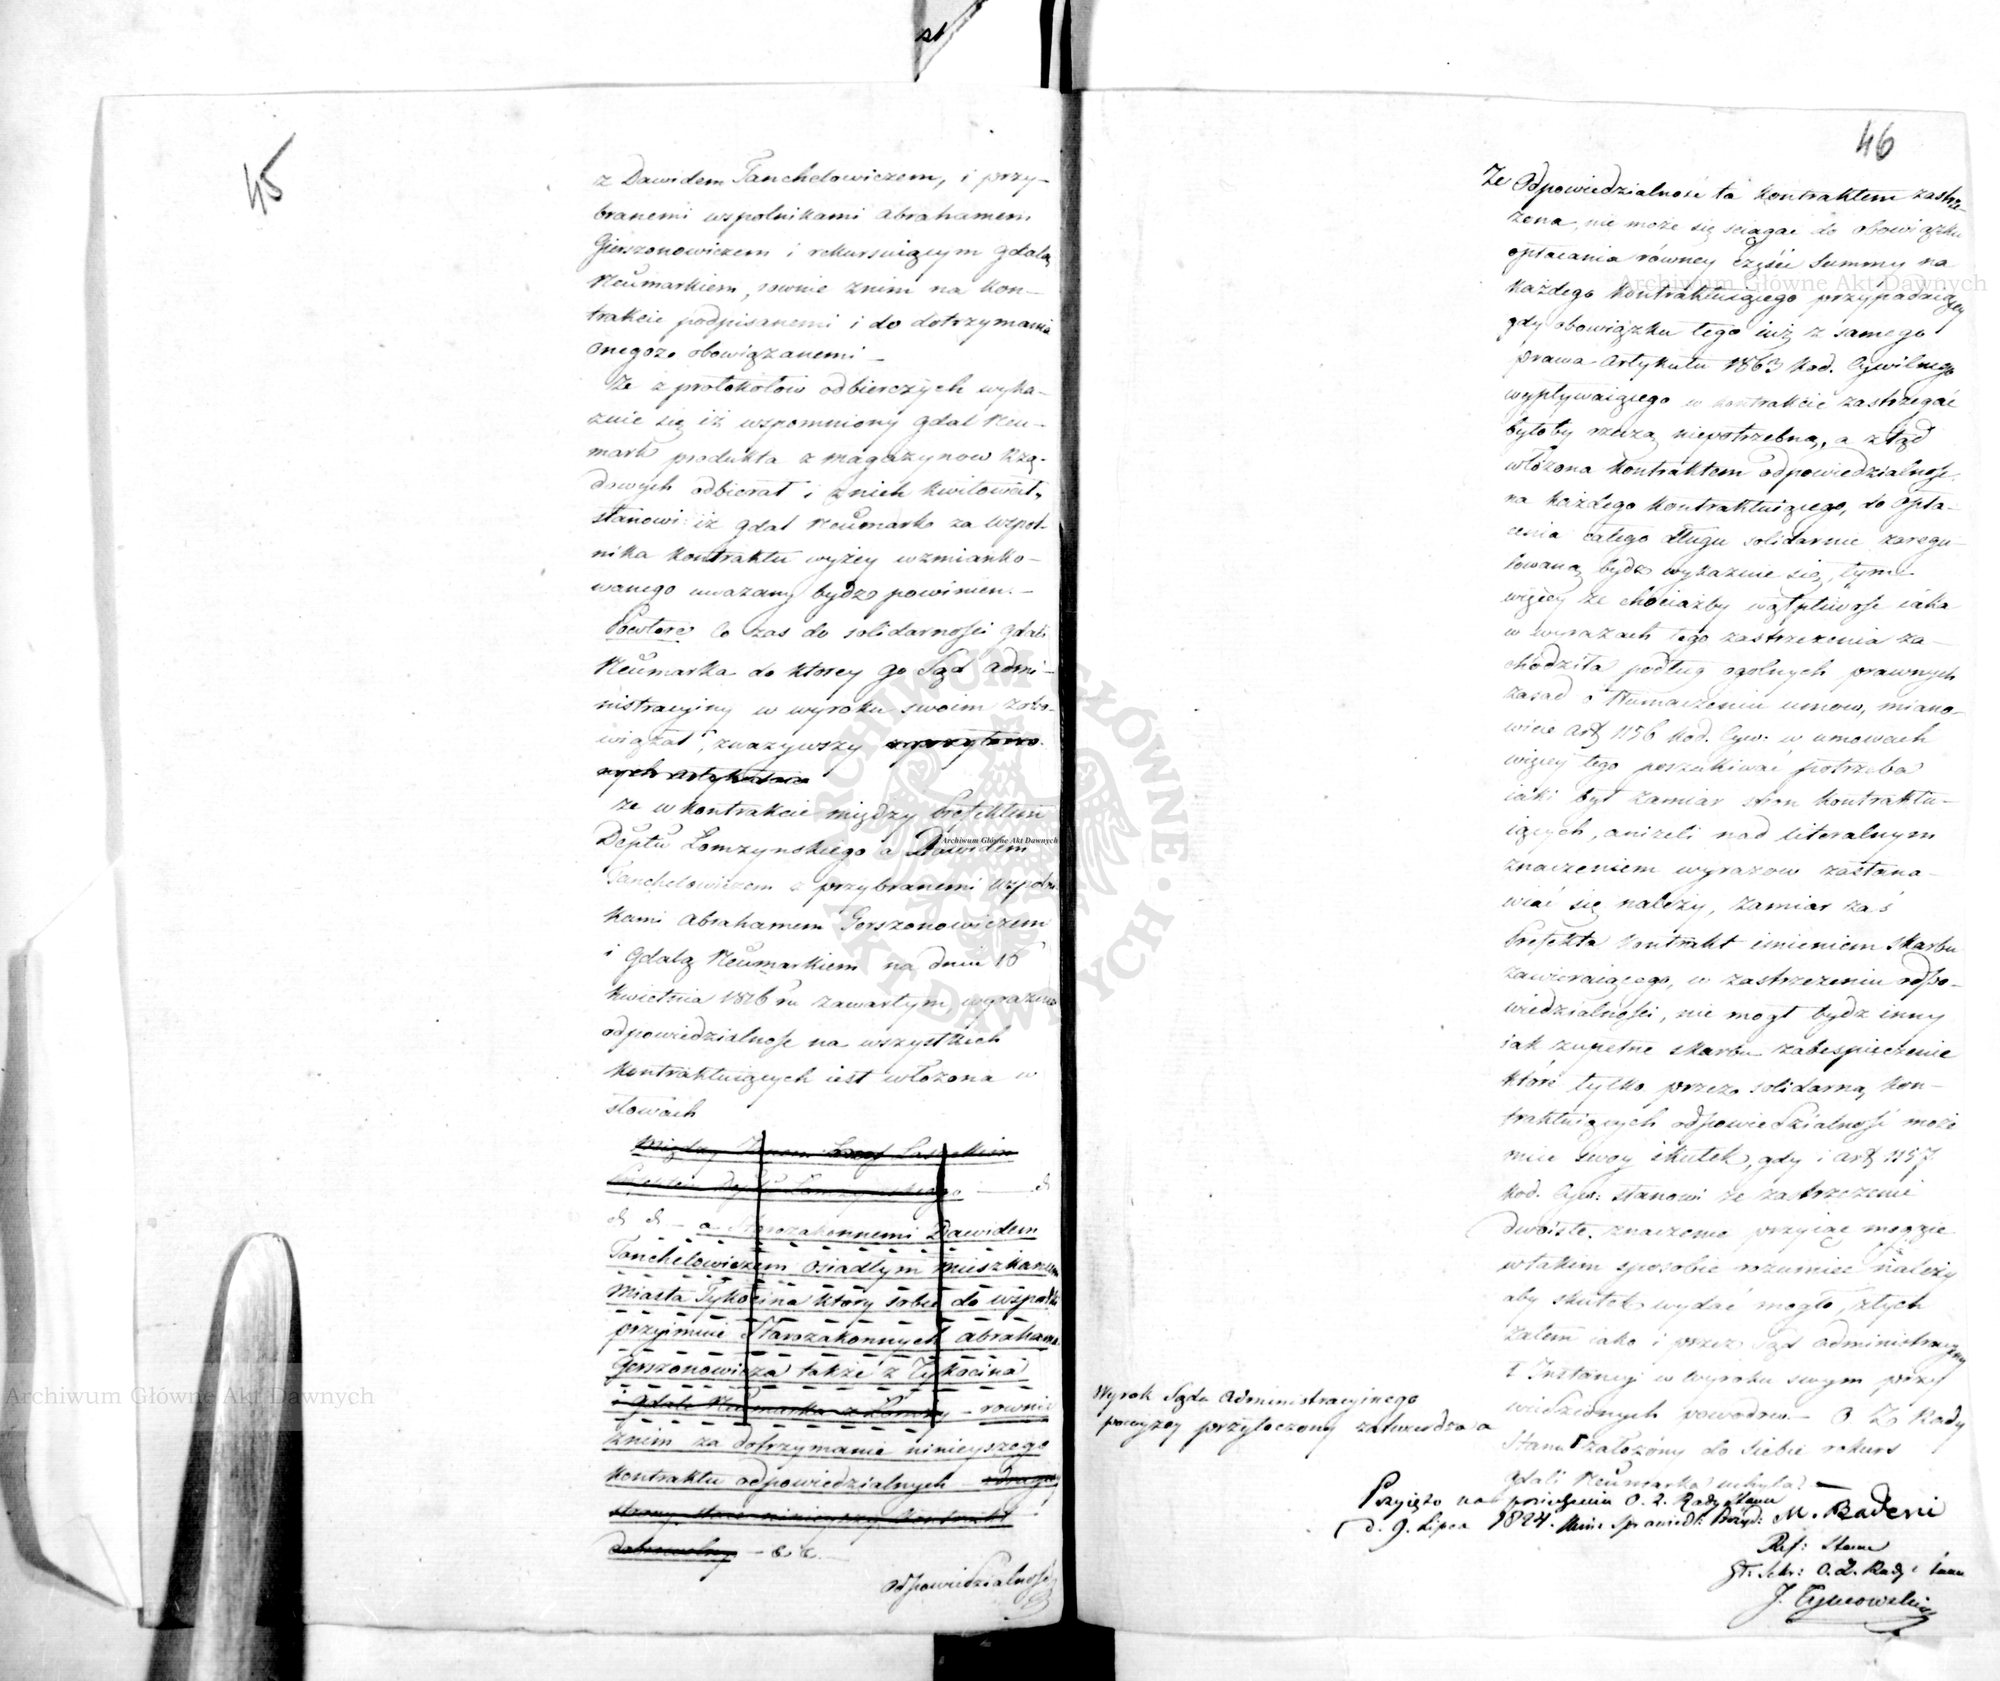 45
z Dawidem Tanchelowiczem, i przy-
branemi wspolnikami Abrahamem
Gierszonowiczem i rekursuiącym Gdalą
Neumarkiem, rownie znim na kon-
trakcie podpisanemi i do dotrzymania
onegoż obowiązanemi –
Że z protokołow odbierczych wyka-
zuie się iż wspomniony Gdal Neu-
mark produkta z magazynow Rzą-
dowych odbierał i z nich kwitował,
stanowi iż Gdal Neumark za wspol-
nika kontraktu wyżey wzmianko-
wanego uważany bydź powinien. –
Powtore Co zas do solidarności Gdali
Neumarka do ktorey go Sąd Admi-
nistracyiny w wyroku swoim zobo-
wiązał, zważywszy
że w kontrakcie między Prefektem
Deptu Łomzynskiego a Dawidem
Tanchelowiczem z przybranemi wspolni-
kami Abrahamem Gerszonowiczem
i Gdalą Neumarkiem na dniu 16
kwietnia 18 ru zawartym, wyrazna
odpowiedzialnosc na wszystkich
kontraktuiących iest włożona w
słowach
Między Lasockim
Prefektem Deptu Łomzynskiego – &
& & – a Starozakonnemi Dawidem
Tanchelowiczem osiadłym mieszkancem
Miasta Tykocina ktory sobie do wspołki
przyimuie Starozakonnych Abrahama
Gerszonowicza także z Tykocina
i Gdale Neumarka z Łomży – rownie
znim za dotrzymanie ninieyszego
kontraktu odpowiedzialnych – z drugiey
strony stanął ninieyszy kontrakt
dobrowolny – & &. –
Odpowiedzialnosc
46
Że Odpowiedzialnosc ta kontraktem zastrze-
żona, nie może się sciągać do obowiązku
opłacania rowney części Summy na
każdego kontraktuiącego przypadaiącey
gdy obowiązku tego iuż z samego
prawa Artykułu 1863 Kod. Cywilnego
wypływaiącego w kontrakcie zastrzegać
byłoby rzeczą niepotrzebną, a ztąd
włożona kontraktem odpowiedzialnosc
na każdego kontraktuiącego, do opła-
cenia całego długu solidarnie
bydź wykazuie się, tym
więcey że chociażby wątpliwosc iaka
w wyrazach tego zastrzeżenia za-
chodziła podług ogolnych prawnych
zasad o tłumaczeniu umow, miano-
wicie Art 1156 Kod. Cyw. w umowach
więcey tego poszukiwać potrzeba
iaki był zamiar stron kontraktu-
iących, aniżeli nad literalnym
znaczeniem wyrazow zastana-
wiać się należy, zamiar zaś
Prefekta kontrakt imieniem Skarbu
zawieraiącego, w zastrzeżeniu odpo-
wiedzialności, nie mogł bydź inny
iak zupełne Skarbu zabespieczenie
ktore tylko przez solidarną kon-
traktuiących odpowiedzialność może
mieć swoy skutek, gdy i art 1157
Kod. Cyw: stanowi że zastrzeżenie
dwoiste znaczenie przyiąć mogące
w takim sposobie rozumieć należy
aby skutek wydać mogło, z tych
zatem iako i przez Sąd Administracyiny
1 Instancyi w wyroku swym przy-
wiedzionych powodow. – O Z Rady
Stanu założony do siebie rekurs
Gdali Neumarka uchyla –
Wyrok Sądu Administracyinego
powyżey przytoczony zatwierdza a
Przyięto na posiedzeniu O. Z. Rady Stanu
d. 9. Lipca 1824. Min: Sprawiedl: Prezyd: M. Badeni
Ref: Stanu
Zt. Sekr: O. Z. Rady Stanu
J. Tymowski
Archiwum Główne Akt Dawnych
Archiwum Główne Akt Dawnych
Archiwum Główne Akt Dawnych
ARCHIWUM GŁÓWNE AKT DAWNYCH